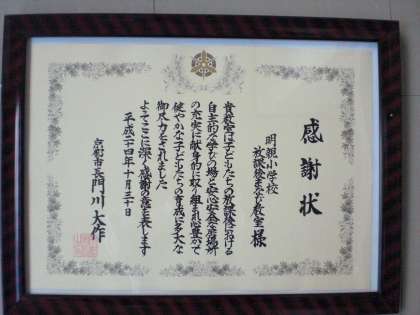 感謝状
明親小学校
放課後まなび教室 様
貴教室は子どもたちの放課後における
自主的な学びの場と安心安全な居場所
の充実に献身的に取り組まれ心豊かで
健やかな子どもたちの育成に多大な
御尽力をされました
よってここに深く感謝の意を表します
平成二十四年十月三十日
京都市長 門川大作